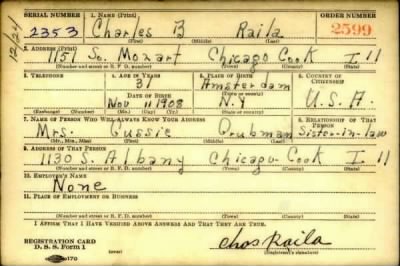 SERIAL NUMBER 1. NAME (Print) ORDER NUMBER
2353 Charles B Raila 2599
(First) (Middle) (Last)
12/21
2. ADDRESS (Print)
1151 So. Mozart Chicago Cook Ill
(Number and street or R. F. D. number) (Town) (County) (State)
3. TELEPHONE 4. AGE IN YEARS 5. PLACE OF BIRTH 6. COUNTRY OF CITIZENSHIP
31 Amsterdam
DATE OF BIRTH (Town or county)
Nov 11 1908 N.Y U.S.A.
(Exchange) (Number) (Mo.) (Day) (Yr.) (State or country)
7. NAME OF PERSON WHO WILL ALWAYS KNOW YOUR ADDRESS 8. RELATIONSHIP OF THAT PERSON
Mrs. Gussie Sister-in-law
(Mr., Mrs., Miss) (First) (Middle) (Last)
9. ADDRESS OF THAT PERSON
1130 S. Albany Chicago Cook Ill
(Number and street or R. F. D. number) (Town) (County) (State)
10. EMPLOYER'S NAME
None
11. PLACE OF EMPLOYMENT OR BUSINESS
(Number and street or R. F. D. number) (Town) (County) (State)
I AFFIRM THAT I HAVE VERIFIED ABOVE ANSWERS AND THAT THEY ARE TRUE.
REGISTRATION CARD
D. S. S. Form 1 Chas Raila
(Registrant's signature)